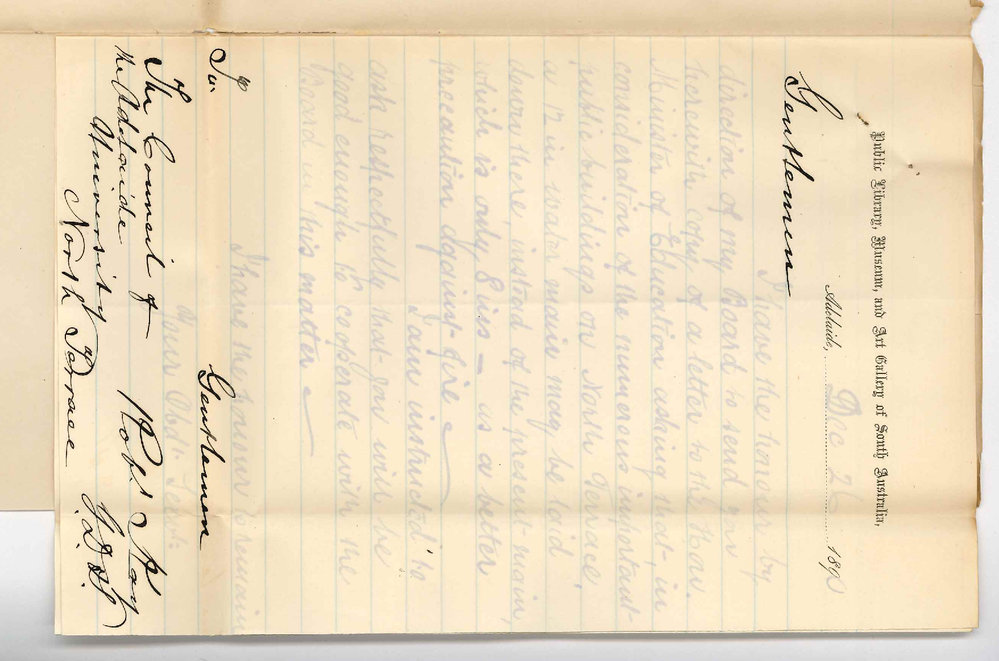 Public Library, Museum, and Art Gallery of South Australia,
Adelaide, Dec 2 189
Gentlemen
I have the honour by
direction of my Board to send you
herewith copy of a letter to the Hon.
Minister of Education asking that, in
consideration of the numerous important
public buildings on North Terrace,
a 12 in water main may be laid
down there instead of the present main,
which is only 8 ins — as a better
precaution against fire
I am instructed to
ask respectfully that you will be
good enough to cooperate with the
Board in this matter
I have the honour to remain
Gentlemen
Your Obdt. Servt.
Robt. Kay
G.D. &
To the
The Council of
the Adelaide
University
North Terrace